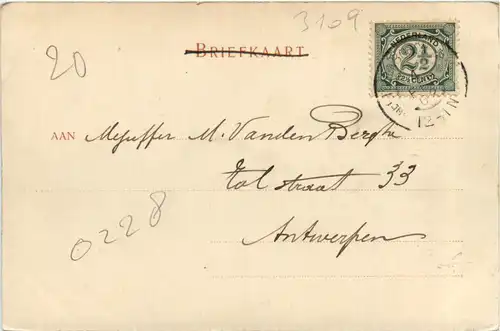 3109
20
BRIEFKAART
NEDERLAND
2½
2½ CENT
AAN Mejuffer M. Vanden Berghe
Tolstraat 33
Antwerpen
0228